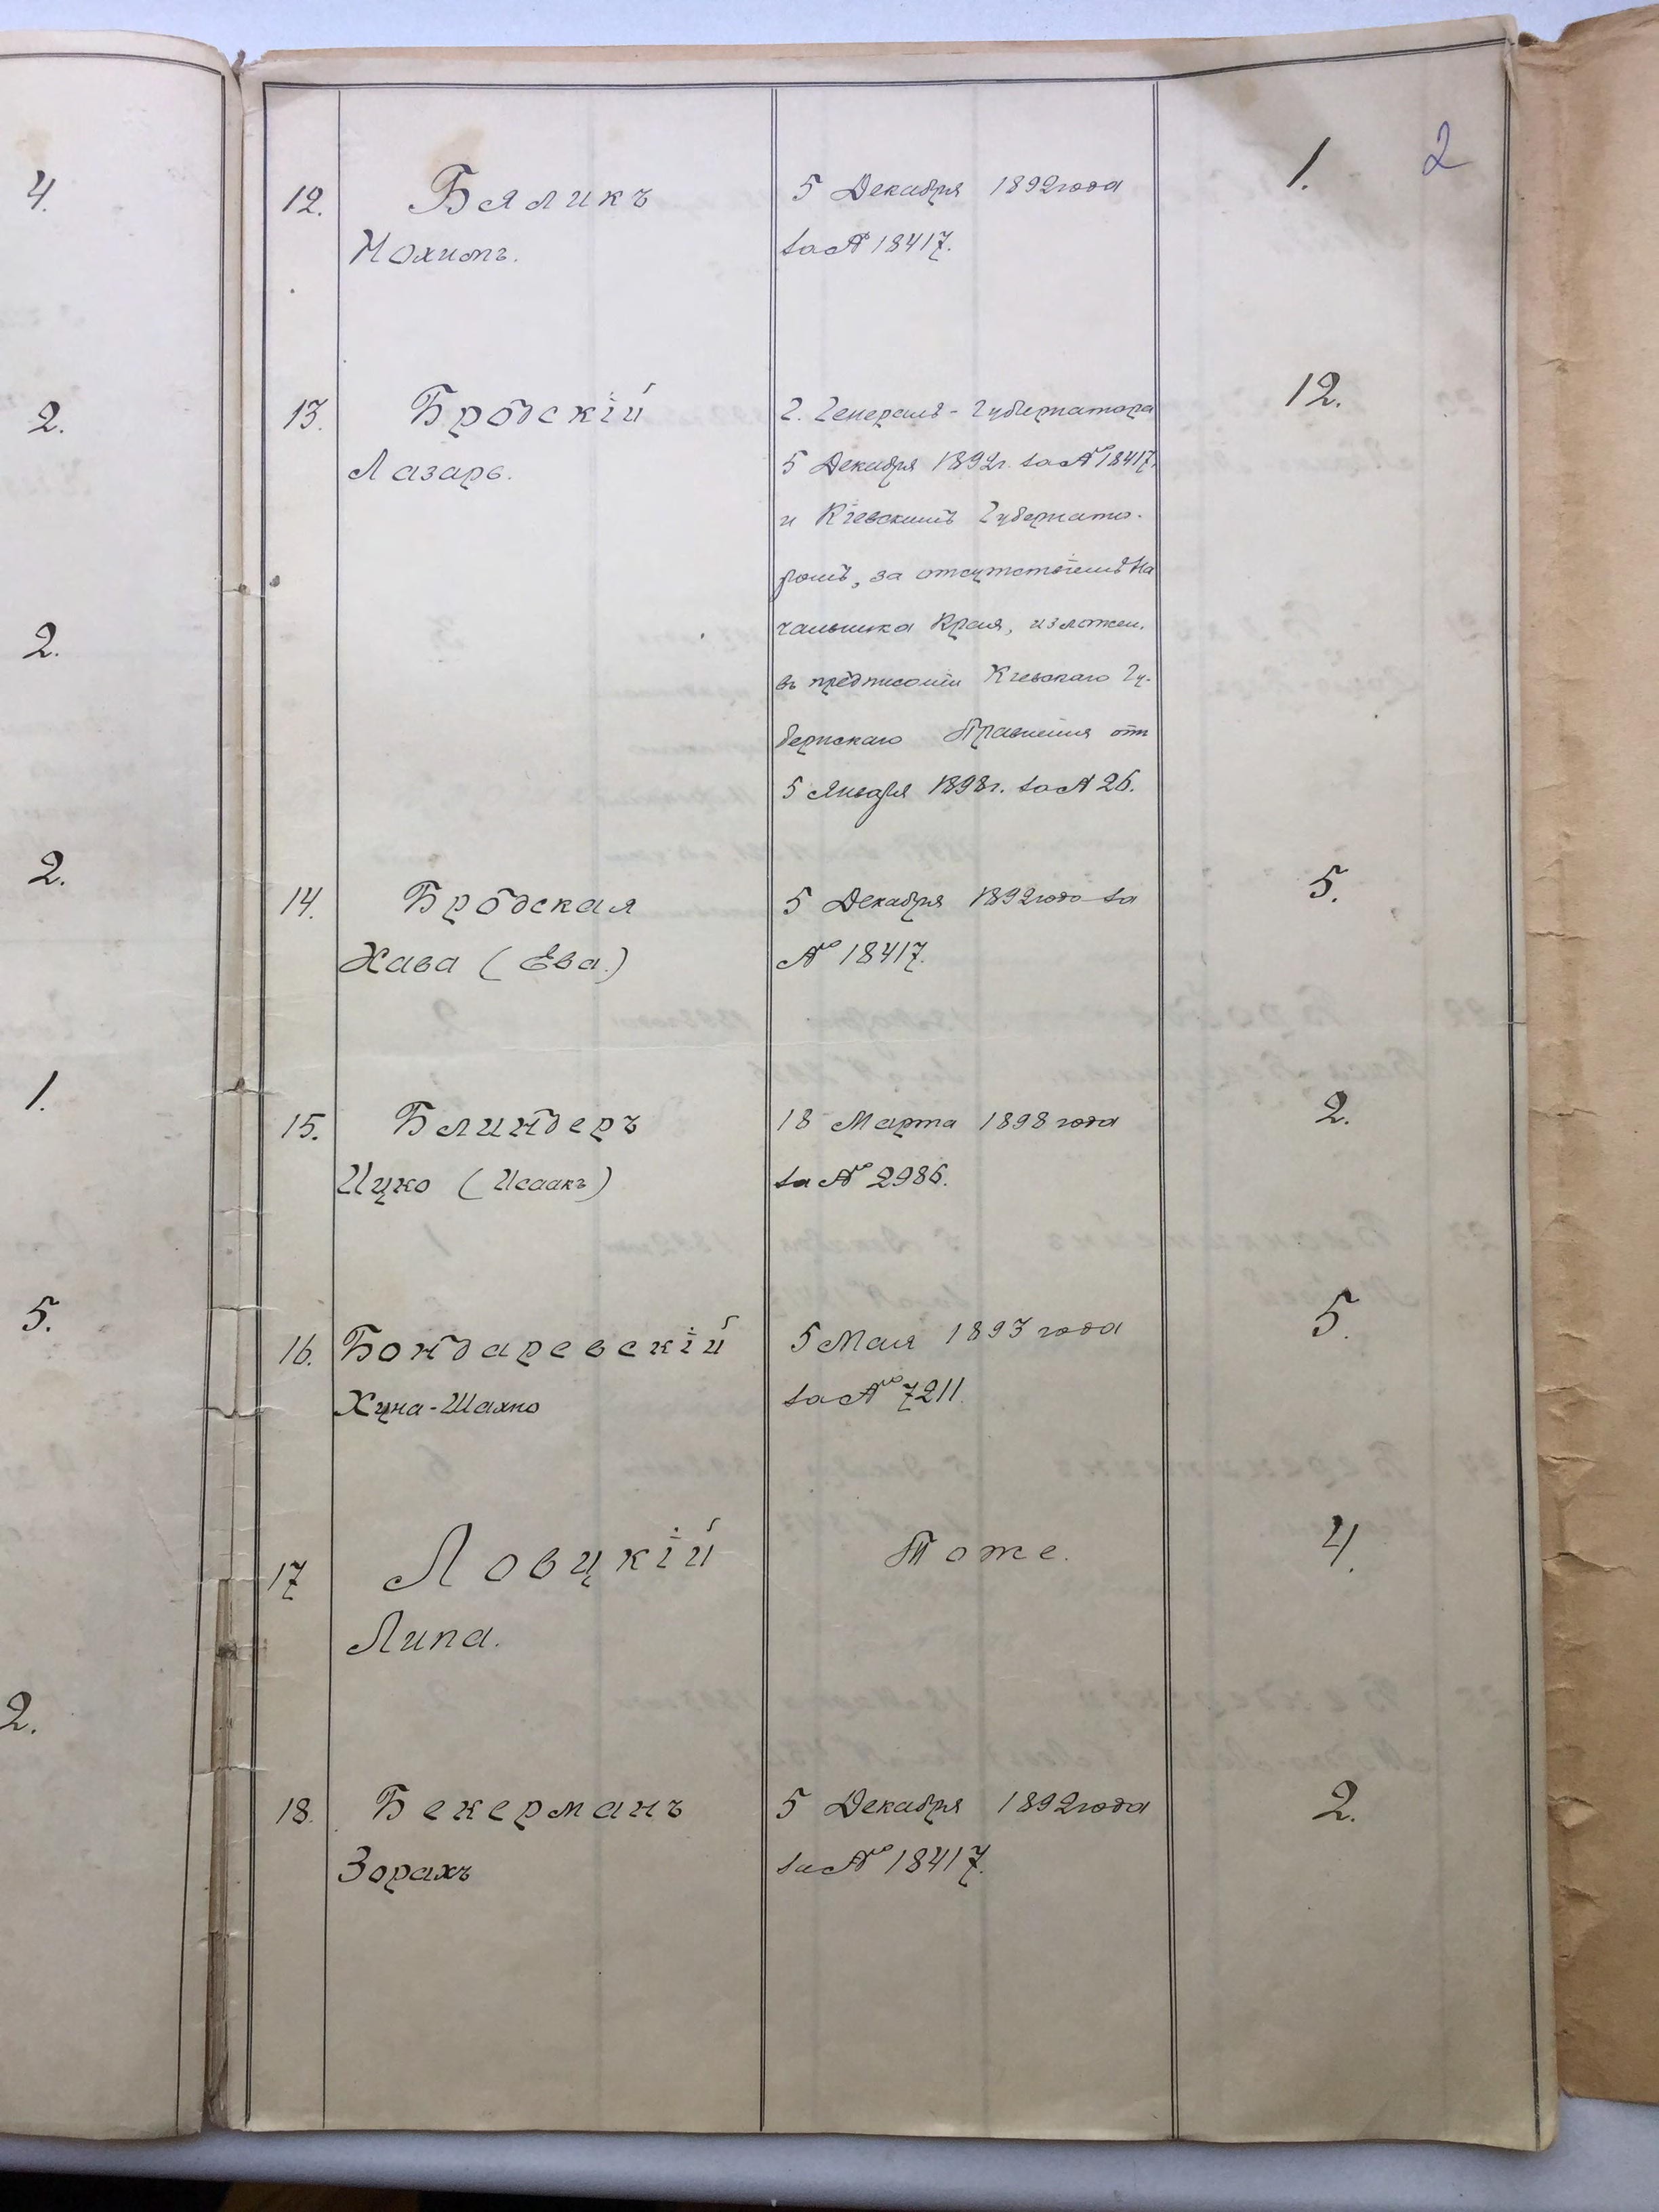 2
4.
2.
2.
2.
1.
5.
2.
12. Бяликъ 5 Декабря 1892 года 1.
за № 18417.
13. Бродскій Г. Генералъ-Губернатора 12.
Лазарь. 5 Декабря 1892 г. за № 18417,
и Кіевскимъ Губернато-
ромъ, за отсутствіемъ На
чальника Края, изложен.
въ предписаніи Кіевскаго Гу-
бернскаго Правленія отъ
5 Января 1898 г. за № 26.
14. Бродская 5 Декабря 1892 года за 5.
Хава (Ева.) № 18417.
15. Блиндеръ 18 Марта 1898 года 2.
Ицко (Исаакъ) за № 2986.
16. Бондаревскій 5 Мая 1893 года 5.
Хуна-Шахно за № 7211.
17 Ловцкій Тоже. 4.
Липа.
18. Бекерманъ 5 Декабря 1892 года 2.
Зорахъ за № 18417.